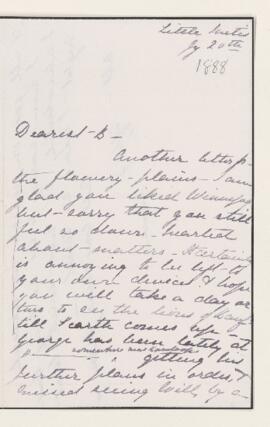 Little Metis
Jy 20th
1888
Dearest B -
Another letter
the flowery - plains - I am
glad you liked Winnipeg
but - sorry that you still
feel so down hearted
about - matters - It certainly
is annoying to be left to
your own devices & hope
you will take a day or
two to see the
till comes up -
George has been lately at
somewhere near
getting his
further plans in order, &
missed seeing Willy by a